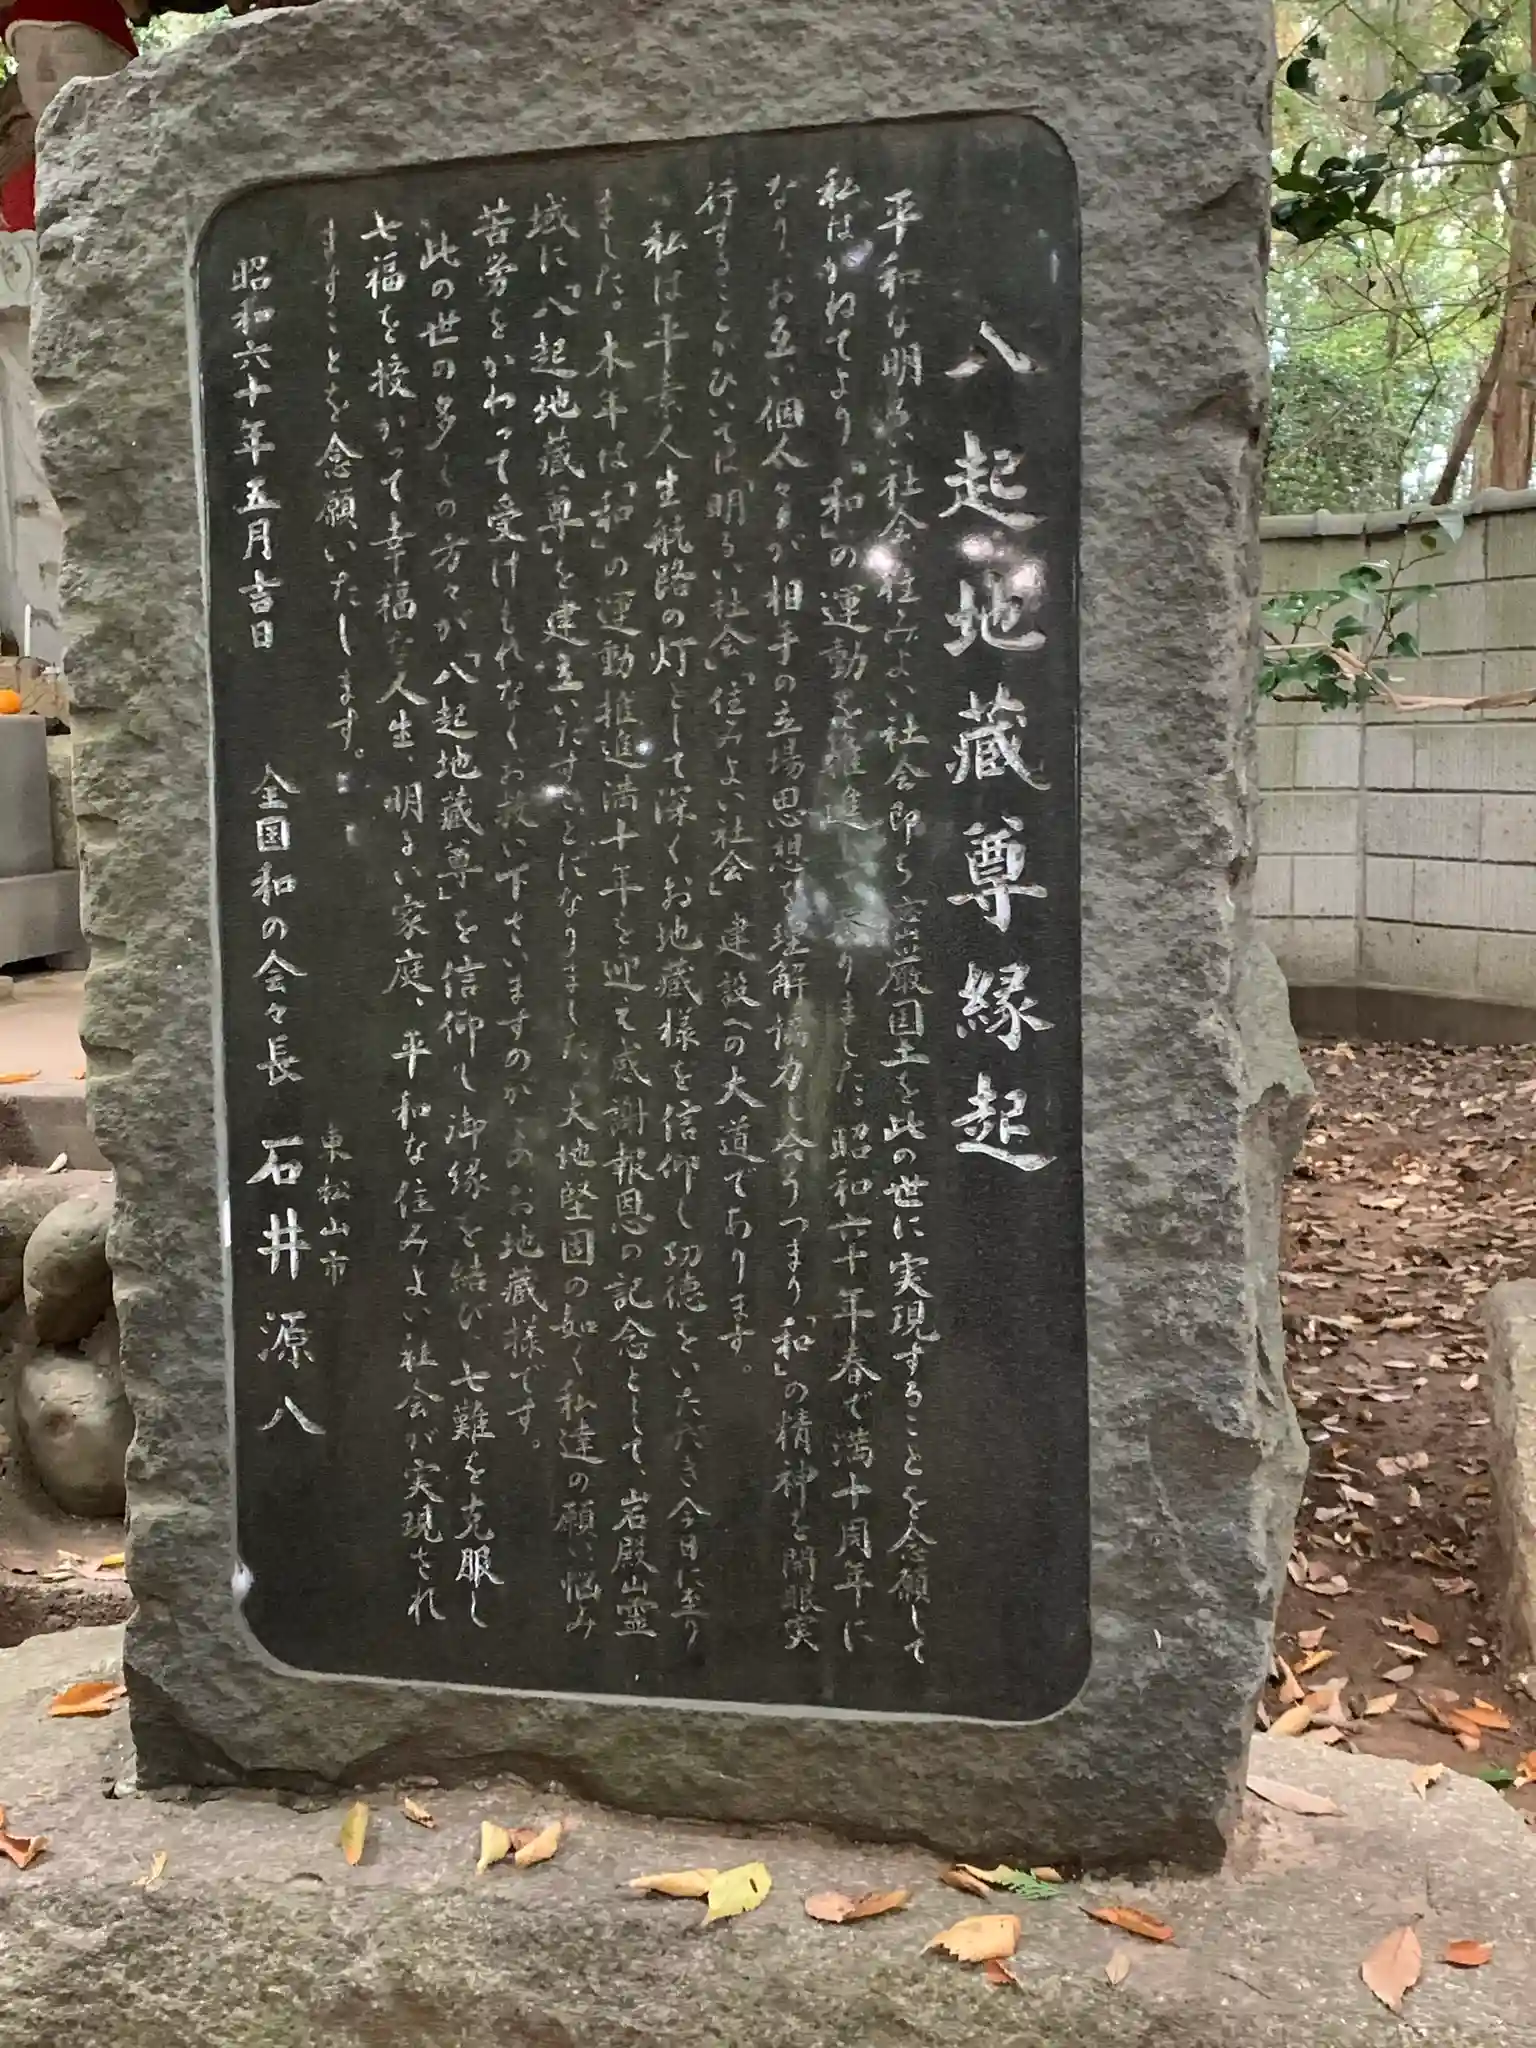 八起地蔵尊縁起
平和な明るい社会、住みよい社会即ち荘厳国土を此の世に実現することを念願して
私はかねてより「和」の運動を推進して参りました。昭和六十年春で満十周年に
なり、お互い個人々々が相手の立場思想を理解協力し合うつまり「和」の精神を開眼実
行することがひいては「明るい社会」「住みよい社会」建設への大道であります。
私は平素人生航路の灯として深くお地蔵様を信仰し功徳をいただき今日に至り
ました。本年は「和」の運動推進満十年を迎え感謝報恩の記念として、岩殿山霊
域に「八起地蔵尊」を建立いたすことになりました。大地堅固の如く私達の願い、悩み
苦労をかわって受けもれなくお救い下さいますのがこのお地蔵様です。
此の世の多くの方々が「八起地蔵尊」を信仰し御縁を結び、七難を克服し
七福を授かって幸福な人生、明るい家庭、平和な住みよい社会が実現され
ますことを念願いたします。
昭和六十年五月吉日
東松山市
全国和の会々長 石井源八